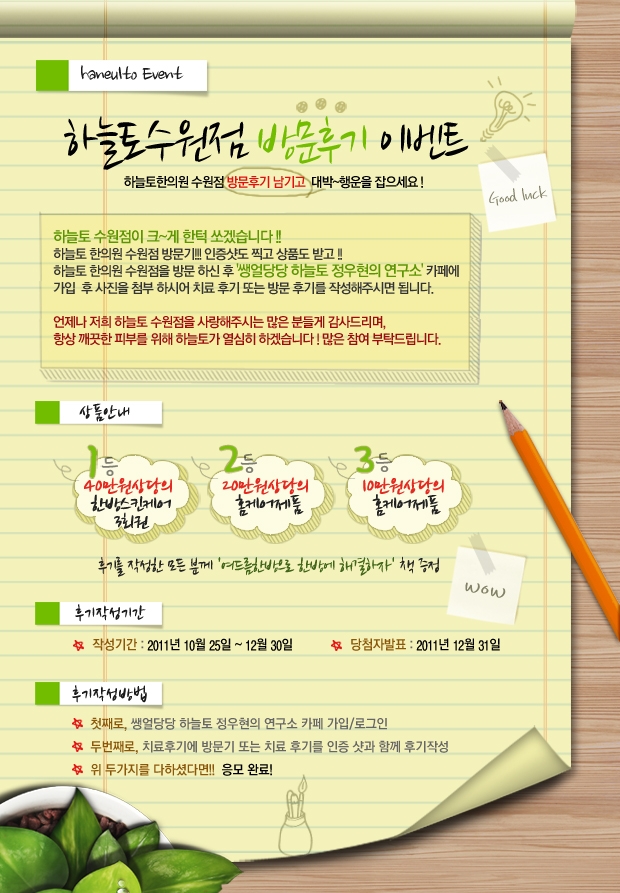 haneulto Event
하늘토수원점 방문후기 이벤트
하늘토한의원 수원점 방문후기 남기고 대박~행운을 잡으세요!
Good luck
하늘토 수원점이 크~게 한턱 쏘겠습니다!!
하늘토 한의원 수원점 방문기!!! 인증샷도 찍고 상품도 받고!!
하늘토 한의원 수원점을 방문 하신 후 '쌩얼당당 하늘토 정우현의 연구소' 카페에
가입 후 사진을 첨부 하시어 치료 후기 또는 방문 후기를 작성해주시면 됩니다.
언제나 저희 하늘토 수원점을 사랑해주시는 많은 분들게 감사드리며,
항상 깨끗한 피부를 위해 하늘토가 열심히 하겠습니다! 많은 참여 부탁드립니다.
상품안내
1등
40만원상당의
한방스킨케어
3회권
2등
20만원상당의
홈케어제품
3등
10만원상당의
홈케어제품
후기를 작성한 모든 분께 '여드름한방으로 한방에 해결하자' 책 증정
WOW
후기작성기간
작성기간 : 2011년 10월 25일 ~ 12월 30일
당첨자발표 : 2011년 12월 31일
후기작성방법
첫째로, 쌩얼당당 하늘토 정우현의 연구소 카페 가입/로그인
두번째로, 치료후기에 방문기 또는 치료 후기를 인증 샷과 함께 후기작성
위 두가지를 다하셨다면!! 응모 완료!